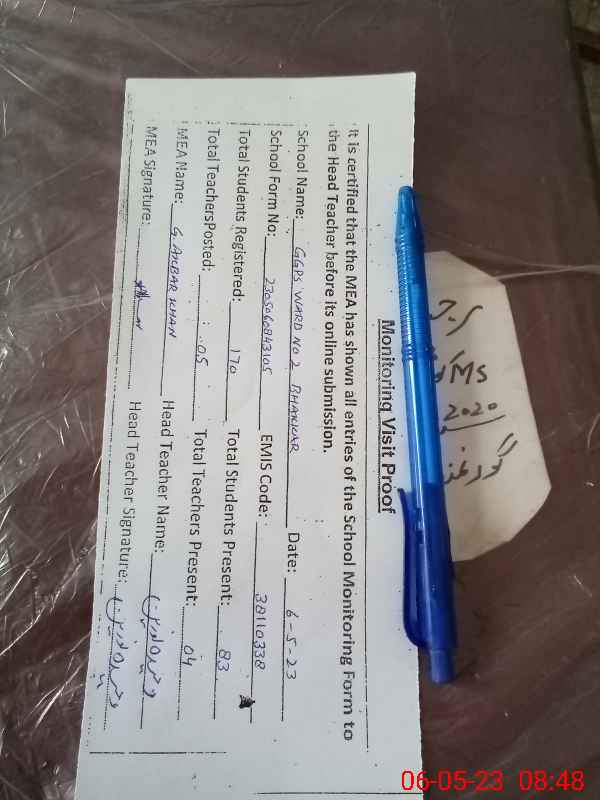 Monitoring Visit Proof
It is certified that the MEA has shown all entries of the School Monitoring Form to
the Head Teacher before its online submission.
School Name: GGPS WARD NO 2 BHAKKAR Date: 6-5-23
School Form No: 2305060843105 EMIS Code: 38110338
Total Students Registered: 170 Total Students Present: 83
Total TeachersPosted: 05 Total Teachers Present: 04
MEA Name: G. AKBAR KHAN Head Teacher Name:
MEA Signature: Head Teacher Signature:
MS
2020
06-05-23 08:48